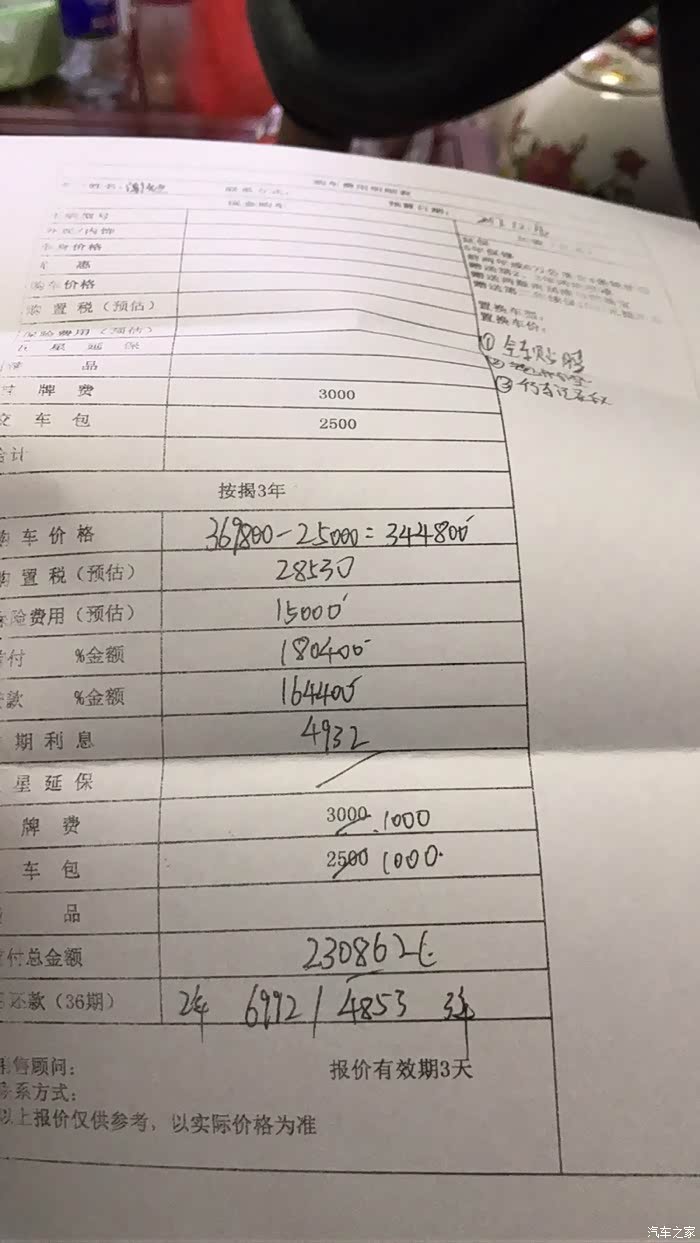 购车费用明细表
姓名：
联系方式：
现金购车
预算日期：
车价格
购置税（预估）
保险费用（预估）
星延保
品
牌费 3000
交车包 2500
合计
延保
置换车型：
置换车价：
①全车贴膜
②
③行车记录仪
按揭3年
购车价格 369800-25000=344800
购置税（预估） 28530
保险费用（预估） 15000
首付 %金额 180400
贷款 %金额 164400
期利息 4932
星延保
牌费 3000 1000
车包 2500 1000
品
付总金额 230862元
还款（36期） 2年 6992 / 4853 3年
销售顾问：
联系方式：
以上报价仅供参考，以实际价格为准
报价有效期3天
汽车之家